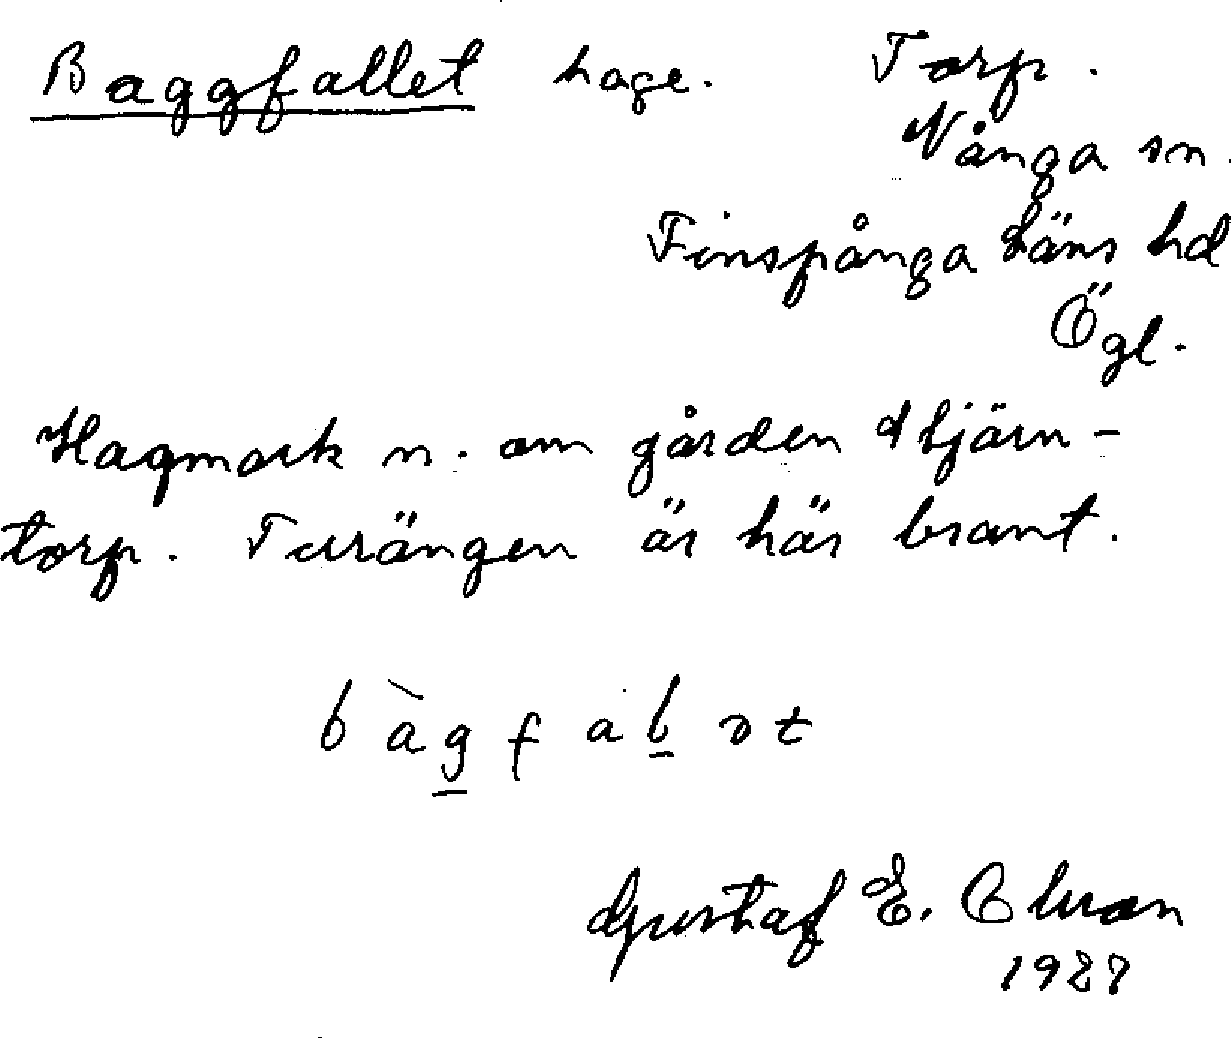 Baggfallet hage. Torp.
Vånga sn.
Finspånga läns hd
Ögl.
Hagmark n. om gården Stjärn-
torp. Terrängen är här brant.
Gustaf E. Olson
1927